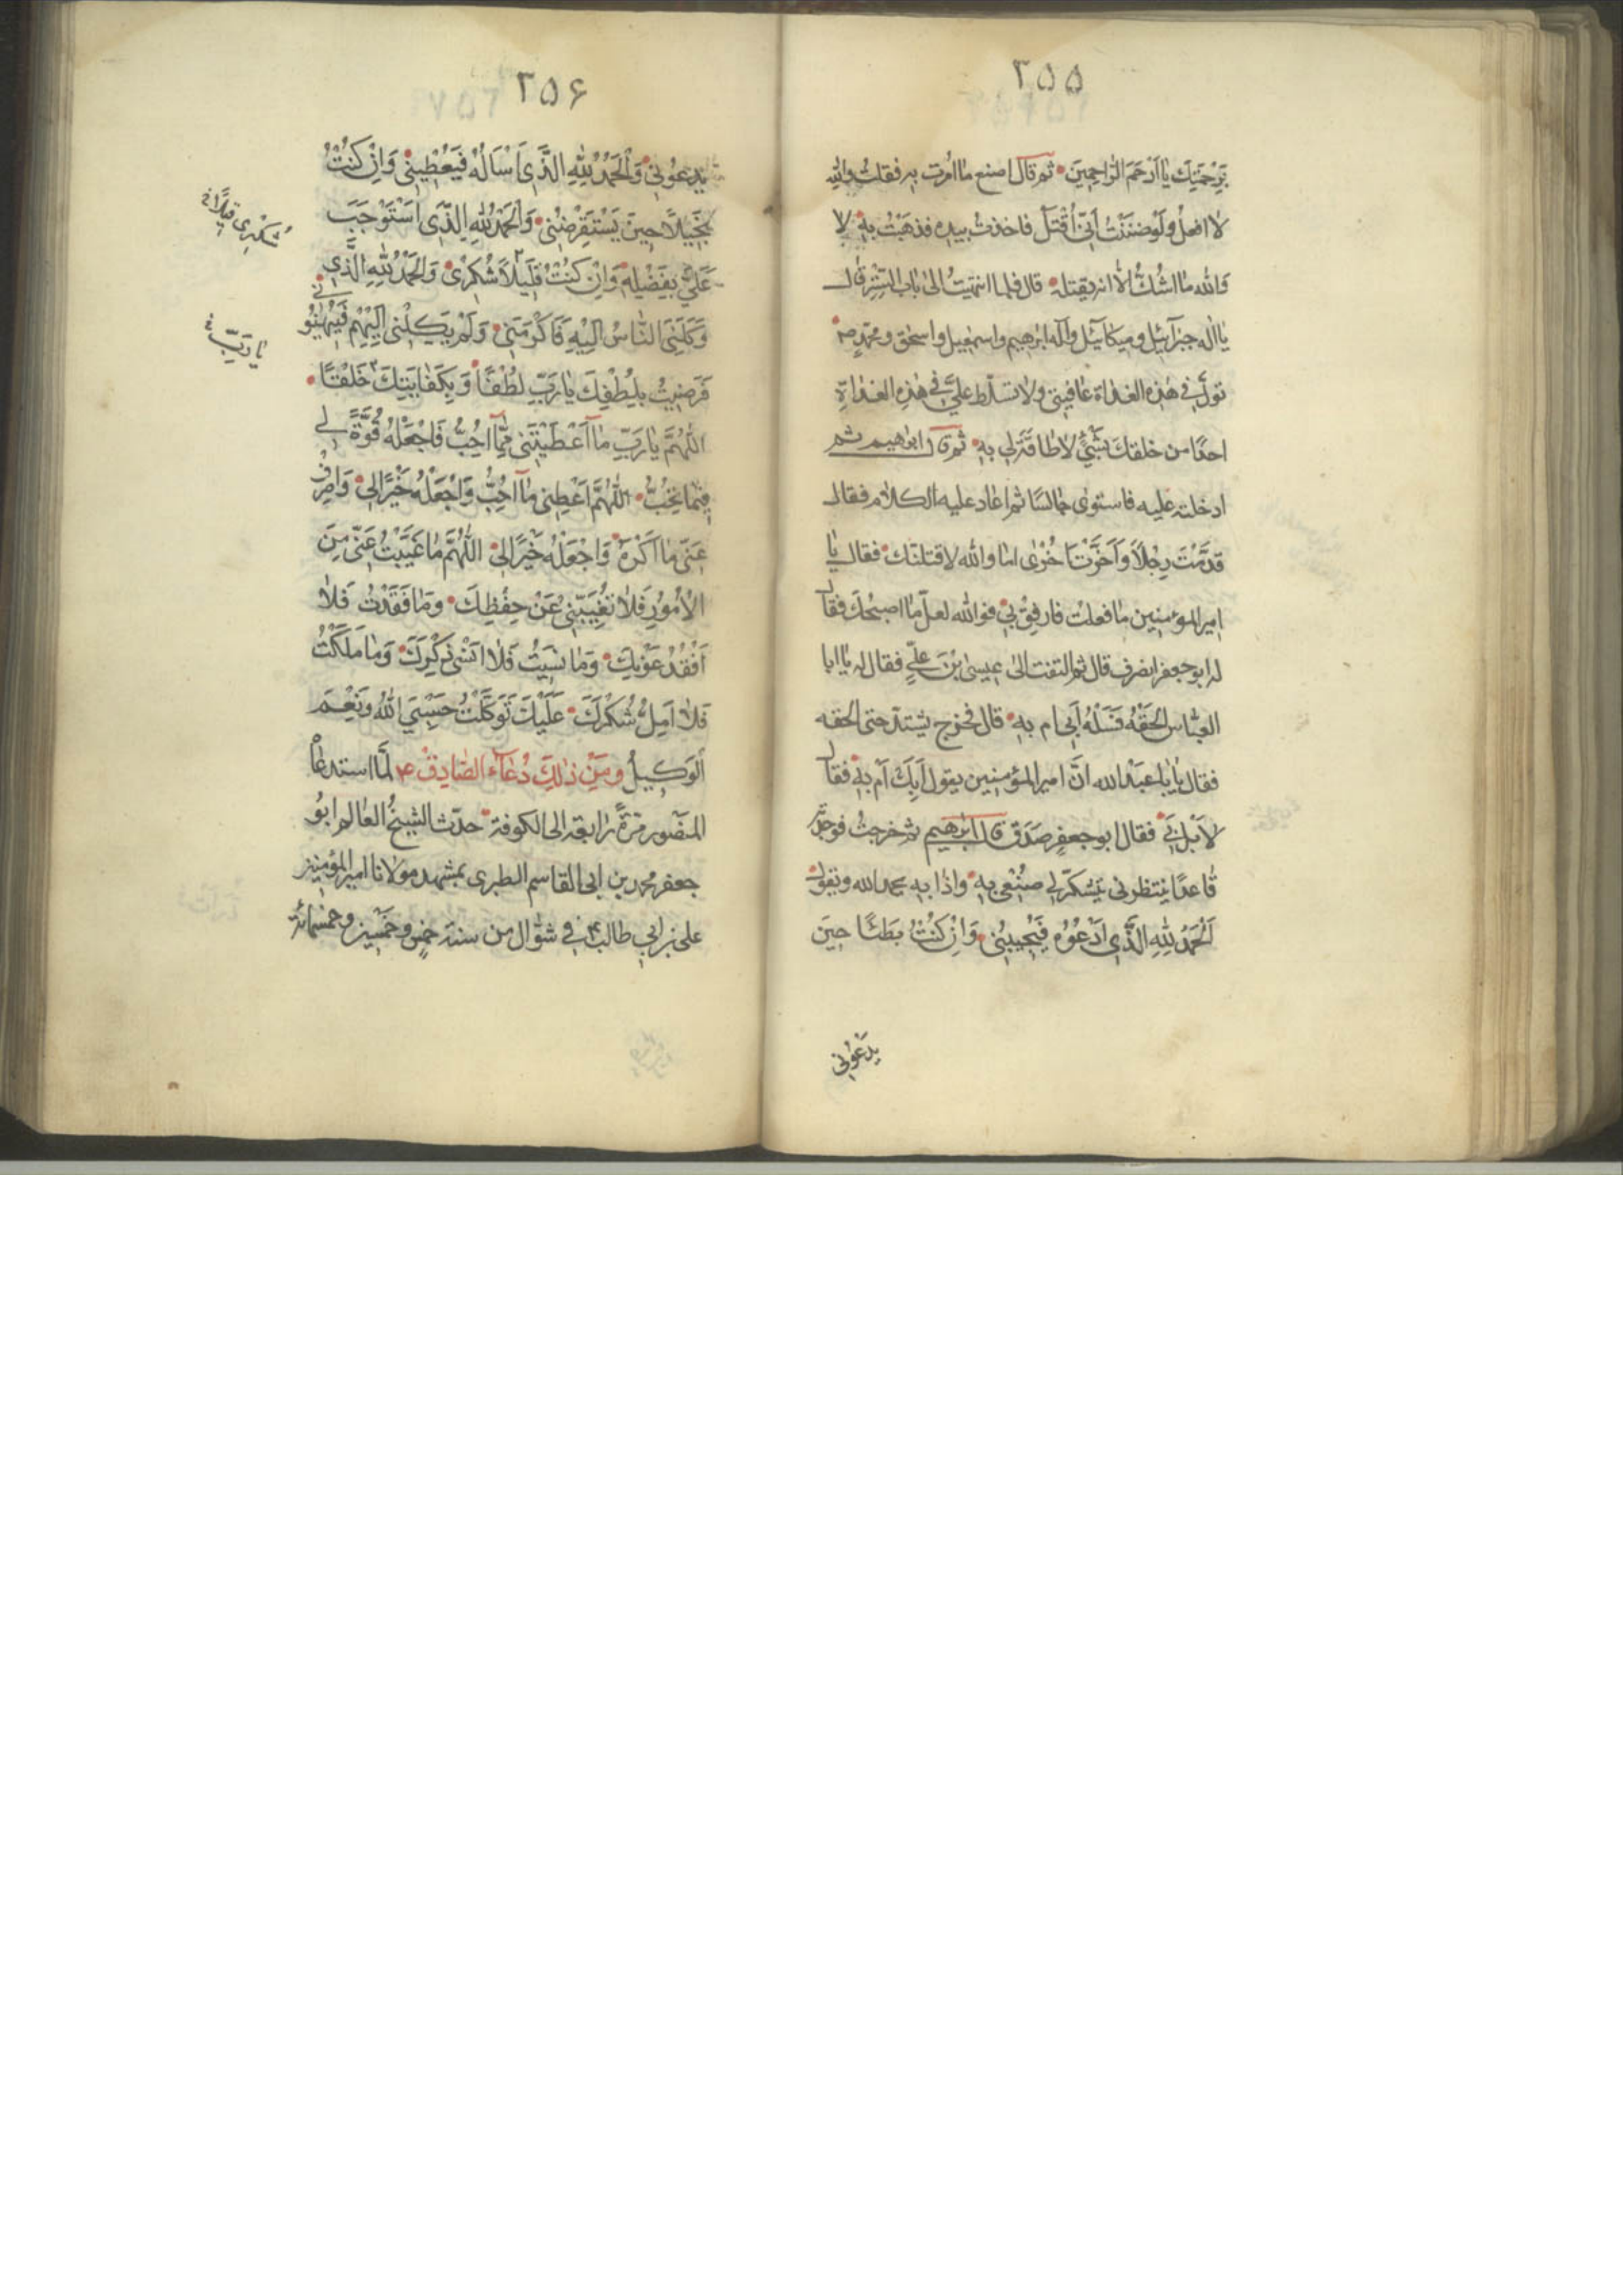 ٢٥٥
بِرَحْمَتِكَ يا اَرْحَمَ الرّاحِمينَ ثم قال اصنع ما اُمرت به فقلت والله
لا افعل ولو ظننت اَنّى اُقْتَل فاخذت بيده فذهبْتُ به لا
والله ما اشكُّ الّا انه يقتله قال فلما انتهيتُ الى باب الستر قال
يا اله جبرآئيل وميكآئيل واله ابرهيم واسمعيل واسحق ومحمّدٍ ص
تولَّ في هذه الغداة عافيتى ولا تسلّط علىَّ فى هذِه الغداةِ
احدًا من خلقك بشَىْءٍ لا طاقَةَ لى بِهِ ثم قال ابرٰهيم ثم
ادخلته عليه فاستوى جالسًا ثم اعاد عليه الكلام فقال
قدَّمْتَ رِجْلاً وَاَخَّرْتَ اُخْرٰى اما والله لاقتلنّك فقال يا
امير المؤمنين ما فعلت فارفِقْ بى فوالله لعلّ ما اصبحُكَ فقال
له ابو جعفر انصرف قال ثم التفت الى عيسى بْنَ علىٍّ فقال له يا ابا
العبّاس الحقْهُ فَسَلْهُ اَبى ام به قال فخرج يشتدّ حتى لحقه
فقال يا ابا عبد الله انّ امير المؤمنين يقول اَبِكَ اَمْ بِهِ فقال
لا بَلْ بى فقال ابو جعفرٍ صَدَقَ قال ابرهيم ثم خرجتُ فوجدته
قاعدًا ينتظرنى يتشكّر لى صُنْعى بِهِ واذا به يحمد الله ويقول
اَلْحَمْدُ لِلّٰهِ الَّذى اَدْعُوُه فَيُجيبُنى وَاِنْ كُنْتُ بَطيئًا حينَ
يَدْعُونى
٢٥۶
يَدعُونى وَالْحَمْدُ لِلّٰهِ الَّذى اَسْاَلُهُ فَيُعْطينى وَاِنْ كُنْتُ
بَخيلاً حينَ يَسْتَقْرِضُنى وَالْحَمْدُ لِلّٰهِ الَّذى اسْتَوْجَبَ
عَلَىَّ بِفَضْلِهِ وَاِنْ كُنْتُ قَليلاً شُكْرى وَالْحَمْدُ لِلّٰهِ الَّذى
شُكْرى قليلاً
وَكَلَنِى النّاسُ اِلَيْهِ فَاَكْرَمَنى وَلَمْ يَكِلْنى اِلَيْهِمْ فَيُهينُونى
يا ربِّ
فَرَضيتُ بِلُطْفِكَ يا رَبِّ لُطْفًا وَبِكِفايَتِكَ خَلَفًا
اللّٰهُمَّ يا رَبِّ ما اَعْطَيْتَنى مِمّا اُحِبُّ فَاجْعَلْهُ قُوَّةً لى
فيما تُحِبُّ اللّٰهُمَّ اَعْطِنى ما اُحِبُّ وَاجْعَلْهُ خَيْرًا لى وَاصْرِفْ
عَنّى ما اَكْرَهُ وَاجْعَلْهُ خَيْرًا لى اللّٰهُمَّ ما غَيَّبْتَ عَنّى مِنَ
الْاُمُورِ فَلا تُغَيِّبْنى عَنْ حِفْظِكَ وَما فَقَدْتُ فَلا
اَفْقُدُ عَوْنَكَ وَما نَسيتُ فَلا اَنْسى ذِكْرَكَ وَما مَلَلْتُ
فَلا اَمِلُّ شُكْرَكَ عَلَيْكَ تَوَكَّلْتُ حَسْبِىَ اللّٰهُ وَنِعْمَ
الْوَكيلُ وَمِنْ ذٰلِكَ دُعآء الصّادِقْ ع لَمّا استدعاه
المنصور مَرّةً رابعة الى الكوفة حدّث الشيخُ العالم ابو
جعفر محمد بن ابى القاسم الطبرى بمشهد مولانا امير المؤمنين
على بن ابى طالب ع فى شوّال من سنة خمسٍ وخمسين وخمسمائة